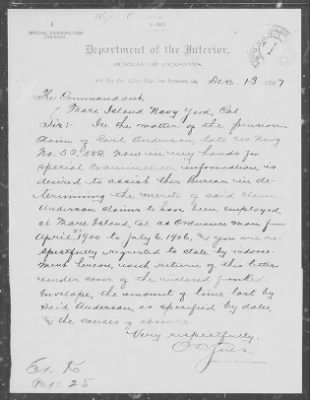 SPECIAL EXAMINATION
DIVISION
Department of the Interior,
BUREAU OF PENSIONS,
Dec. 13 1907
The Commandant,
Mare Island Navy Yard, Cal
Sir: In the matter of the pension
claim of Carl Anderson, late US Navy
No. now in my hands for
special examination information is
desired to assist this Bureau in de-
termining the merits of said claim
Anderson claims to have been employed
at Mare Island, Cal as Ordnance man from
April 1900 to July 6, 1906, you are re-
spectfully requested to state by indorse-
ment hereon, with return of this letter
under cover of the inclosed
Envelope, the amount of time lost by
said Anderson, as specified by dates,
& the causes of
Very respectfully,
Ex. 
Page 25